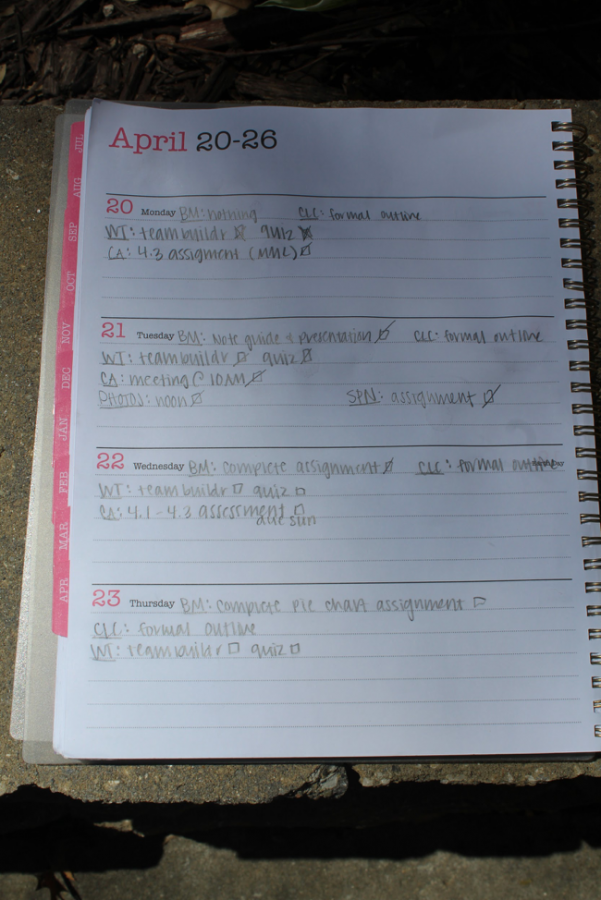 JUL
AUG
SEP
OCT
NOV
DEC
JAN
FEB
MAR
APR
April 20-26
20 Monday BM: nothing CLC: formal outline
WT: teambuildr quiz
CA: 4.3 assigment (MML)
21 Tuesday BM: Note guide + presentation CLC: formal outline
WT: teambuildr quiz
CA: meeting @ 10AM
PHOTOJ: noon SPN: assignment
22 Wednesday BM: complete assignment CLC: formal outline
WT: teambuildr quiz
CA: 4.1-4.3 assessment
due sun
23 Thursday BM: complete pie chart assignment
CLC: formal outline
WT: teambuildr quiz